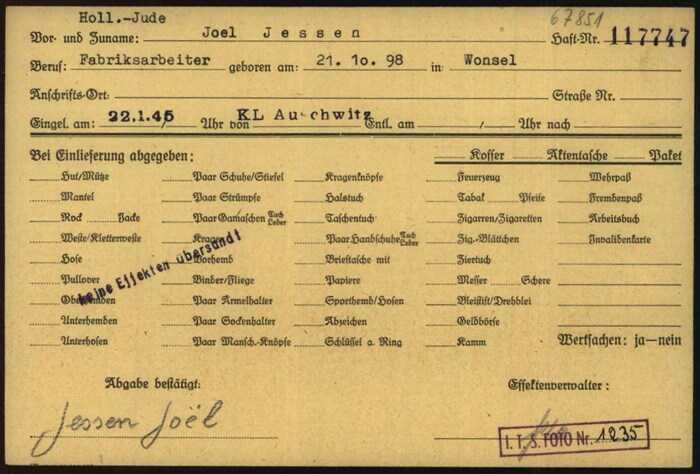 Holl.-Jude
67851
Vor- und Zuname: Joel Jessen Haft-Nr. 117747
Beruf: Fabriksarbeiter geboren am: 21. 1o. 98 in: Wonsel
Anschrifts-Ort: Straße Nr.
Eingel. am: 22.1.45 Uhr von KL Auschwitz Entl. am Uhr nach
Bei Einlieferung abgegeben: Koffer Aktentasche Paket
Hut/Mütze Paar Schuhe/Stiefel Kragenknöpfe Feuerzeug Wehrpaß
Mantel Paar Strümpfe Halstuch Tabak Pfeife Fremdenpaß
Rock Jacke Paar Gamaschen Tuch Leder Taschentuch Zigarren/Zigaretten Arbeitsbuch
Weste/Kletterweste Kragen Paar Handschuhe Tuch Leder Zig.-Blättchen Invalidenkarte
Hose Vorhemd Brieftasche mit Ziertuch
Pullover Binder/Fliege Papiere Messer Schere
Oberhemden Paar Ärmelhalter Sporthemd/Hosen Bleistift/Drehblei
Unterhemden Paar Sockenhalter Abzeichen Geldbörse
Unterhosen Paar Mansch.-Knöpfe Schlüssel a. Ring Kamm Wertsachen: ja—nein
keine Effekten übersandt
Abgabe bestätigt: Effektenverwalter:
Jessen Joël
I. T. S. FOTO Nr. 1235